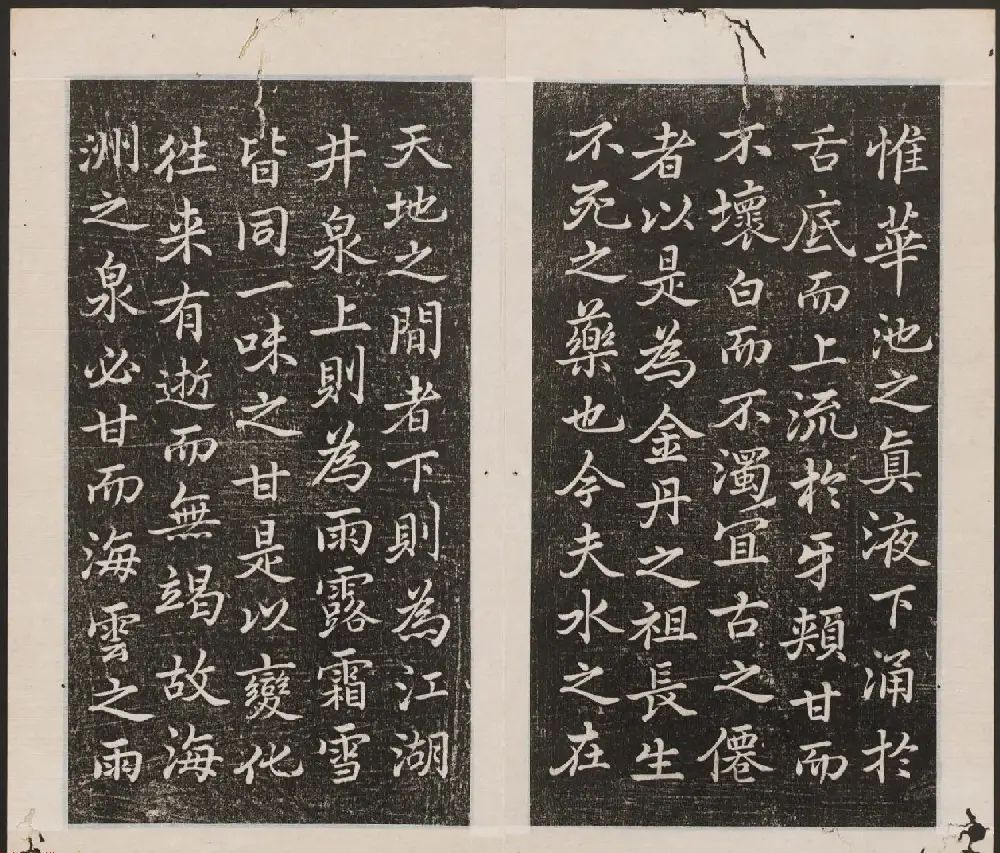 惟華池之真液下涌於
舌底而上流於牙頰甘而
不壞白而不濁宜古之僊
者以是為金丹之祖長生
不死之藥也今夫水之在
天地之間者下則為江湖
井泉上則為雨露霜雪
皆同一味之甘是以變化
徃来有逝而無竭故海
洲之泉必甘而海雲之雨